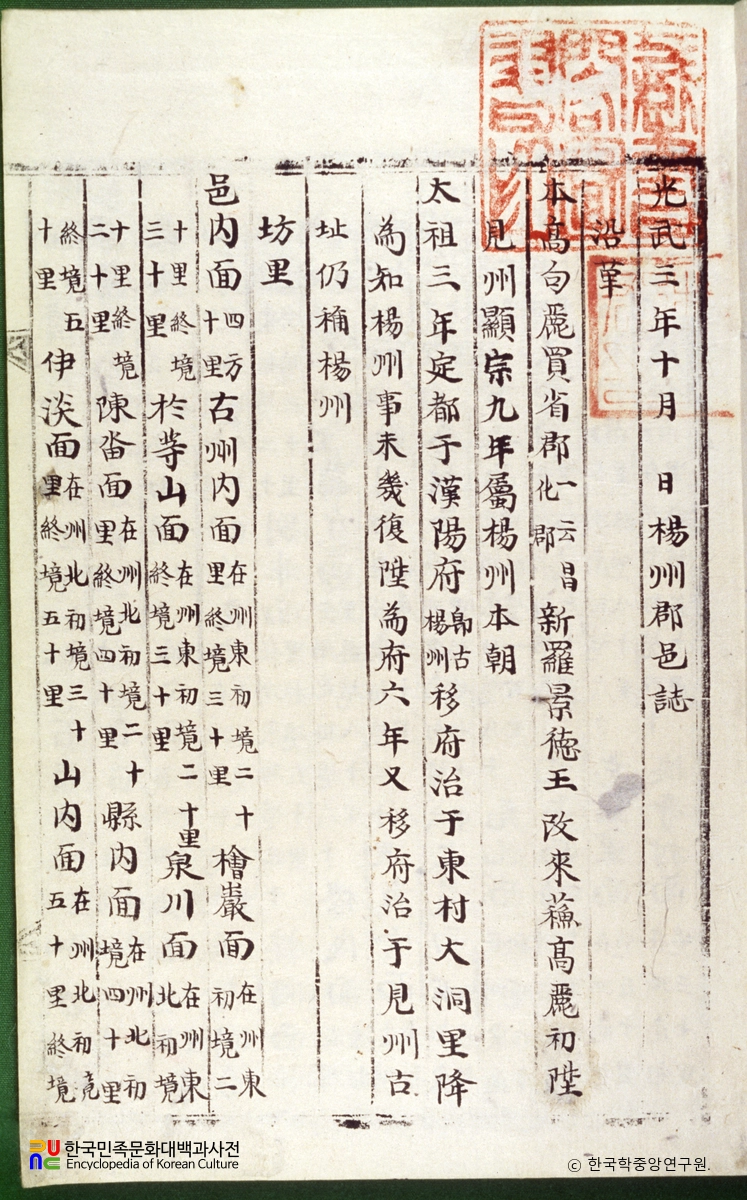 光武三年十月 日楊州郡邑誌
沿革
本高句麗買省郡一云昌化郡新羅景德王改來蘓高麗初陞
見州顯宗九年屬楊州本朝
太祖三年定都于漢陽府卽古楊州移府治于東村大洞里降
為知楊州事未幾復陞為府六年又移府治于見州古
址仍稱楊州
坊里
邑内面四方十里古州内面在州東初境二十里終境三十里檜巖面在州東初境二
十里終境三十里於等山面在州東初境二十里終境三十里泉川面在州東北初境
十里終境二十里陳畓面在州北初境二十里終境四十里縣内面在州北初境四十里
終境五十里伊淡面在州北初境三十里終境五十里山内面在州北初境五十里終境
한국민족문화대백과사전
Encyclopedia of Korean Culture
© 한국학중앙연구원.